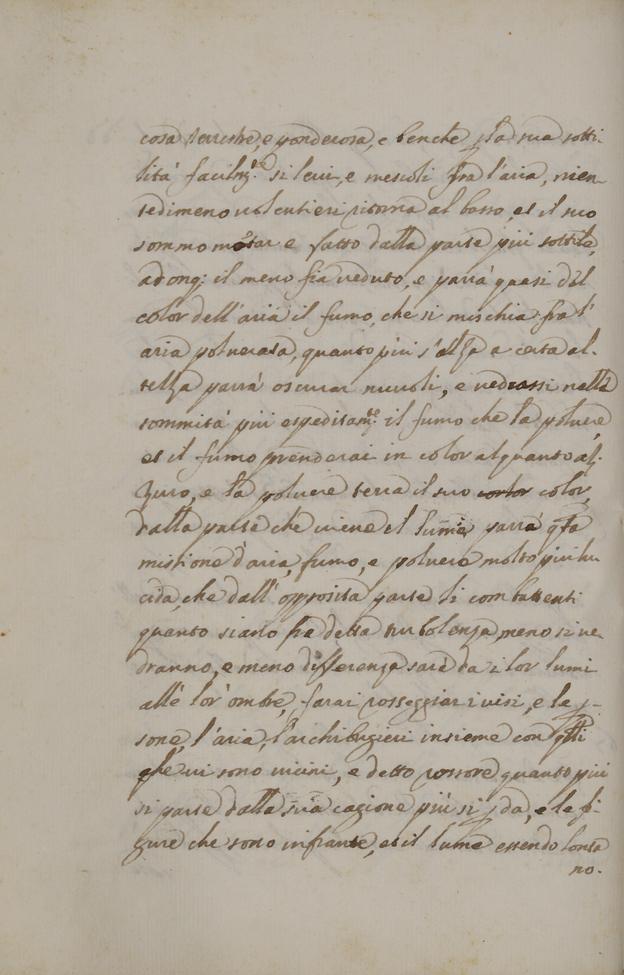 cosa terrestre, e ponderosa, e benche p la sua sotti
lità facilm.te si levi, e mescoli fra l'aria, nien
tedimeno volentieri ritorna al basso, et il suo
sommo montar e fatto dalla parte più sottile,
adonq; il meno fia veduto, e parrà quasi del
color dell'aria il fumo, che si mischia fra l'
aria polverata, quanto più s'alza a certa al-
tezza parrà oscurar nuvoli, e vedrassi nella
sommità più espeditam.te il fumo che la polvere,
et il fumo prenderai in color alquanto az-
zuro, e la polvere terra il suo color,
dalla parte che viene el lume parrà qsta
mistione d'aria, fumo, e polvere molto più lu
cida, che dall'opposita parte li combattenti
quanto siano fra detta turbolenza, meno si ve
dranno, e meno differenza sarà da i lor lumi
alle lor'ombre, farai rosseggiar i visi, e le p-
sone, l'aria, l'archibugieri insieme con qlli
che vi sono vicini, e detto rossore quanto più
si parte dalla sua cagione più si pda, e le fi-
gure che sono infrante, et il lume essendo lonta
no.